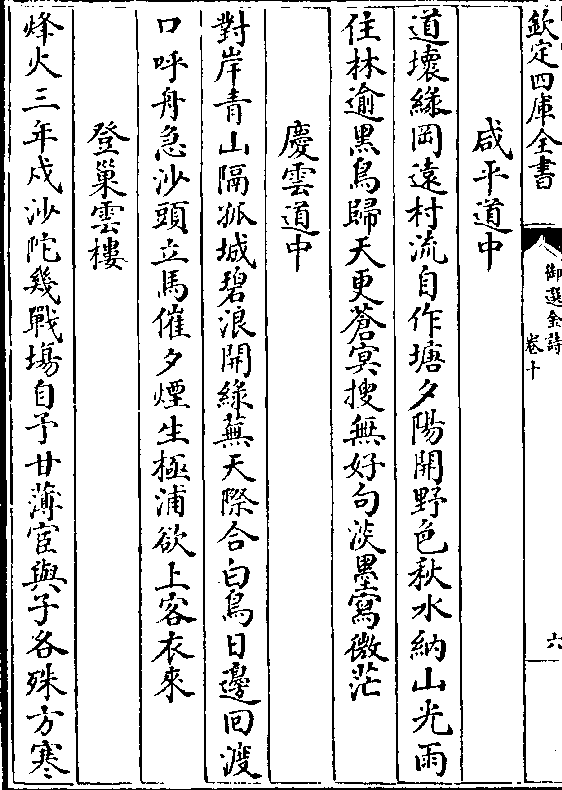 欽定四庫全書
御選金詩
卷十
六
咸平道中
道壞緣岡遠村流自作塘夕陽開野色秋水納山光雨
住林逾黑鳥歸天更蒼冥搜無好句淡墨寫微茫
慶雲道中
對岸青山隔孤城碧浪開綠蕪天際合白鳥日邊回渡
口呼舟急沙頭立馬催夕煙生極浦欲上客衣來
登巢雲樓
烽火三年戍沙陀幾戰場自予甘薄宦與子各殊方寒